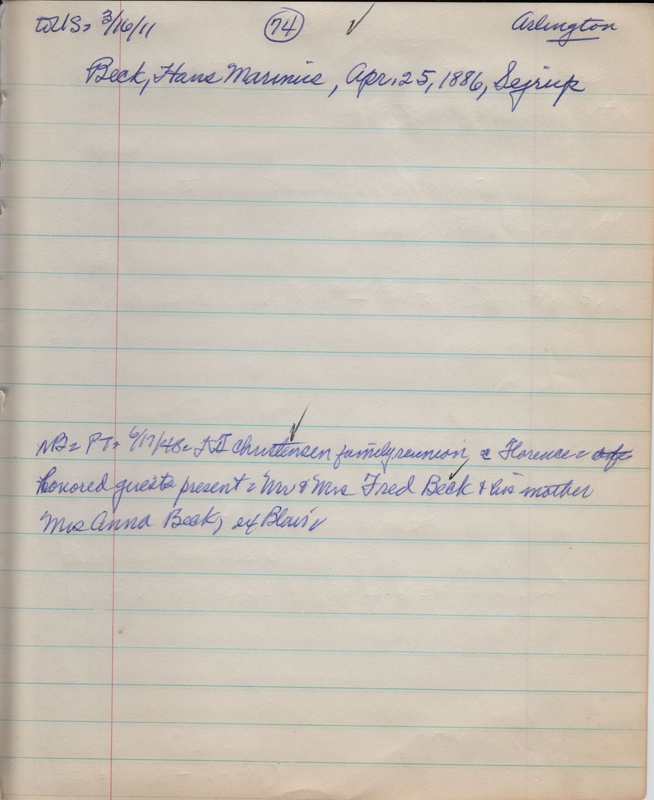 to US= 3/16/11 74 Arlington
Beck, Hans Marinus, Apr. 25, 1886, Sejrup
NB= PT+ 6/17/48= Christensen family reunion, @ Florence=
honored guests present= Mr & Mrs Fred Beck & his mother
Mrs Anna Beck, ex Blair